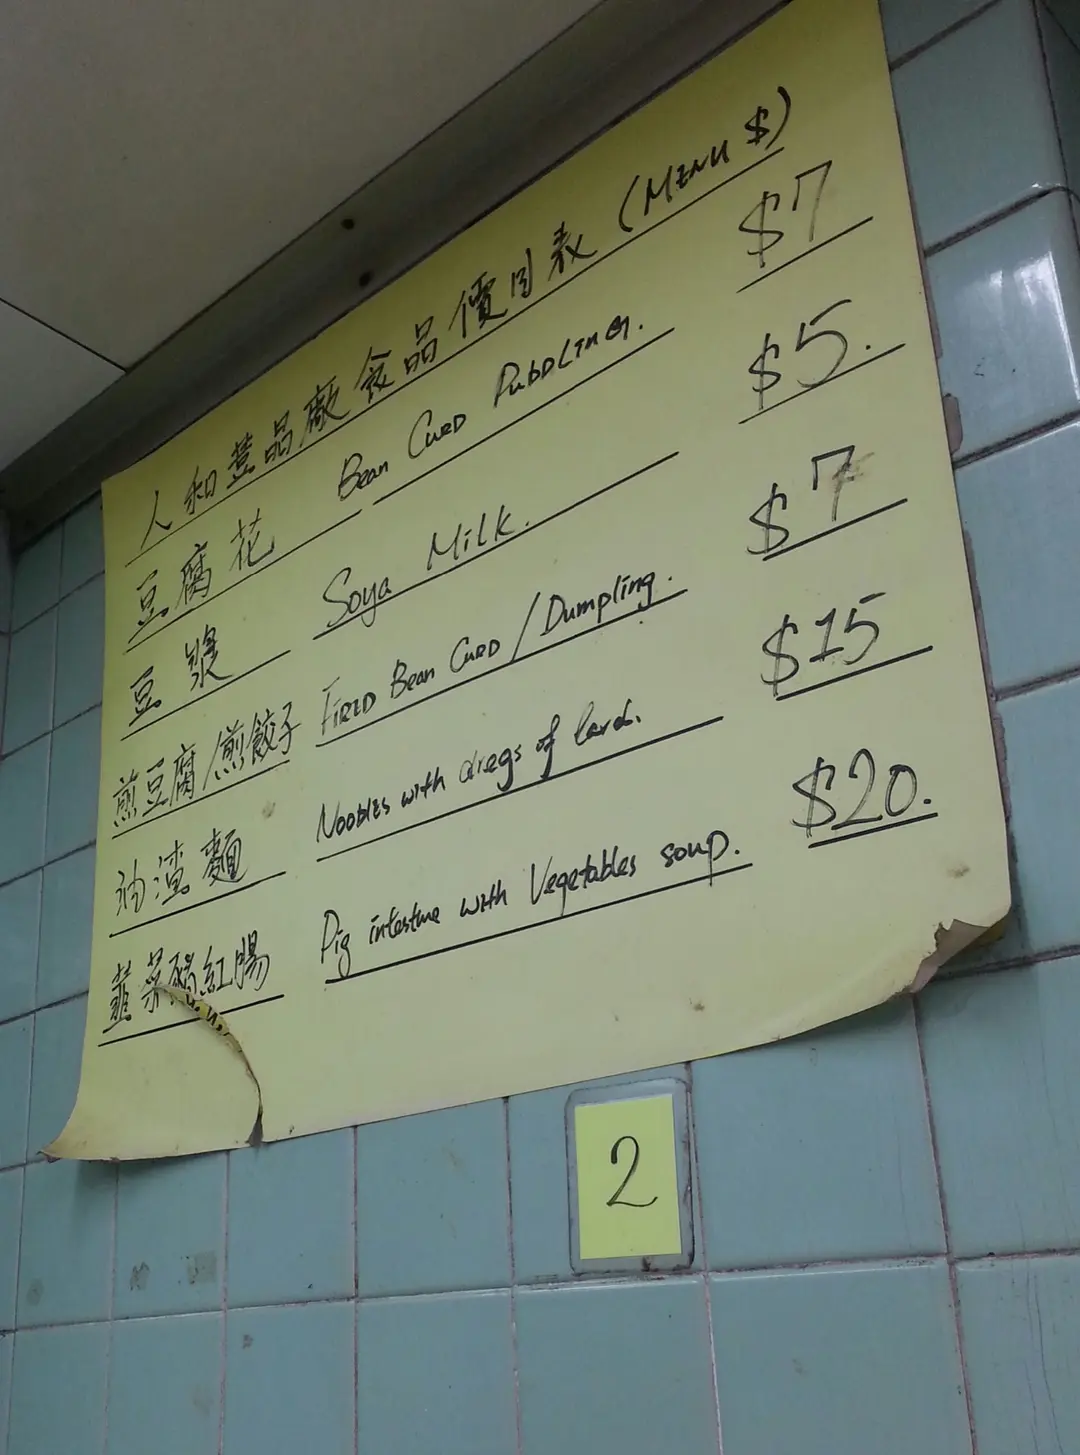 人和荳品廠食品價目表 (MENU $)
豆腐花 Bean CURD PUDDDING. $7
豆漿 Soya Milk. $5.
煎豆腐/煎餃子 FIRED Bean CURD / Dumpling. $7
油渣麵 NOODLES with dregs of lard. $15
韮菜豬紅腸 Pig intestine with Vegetables soup. $20.
2